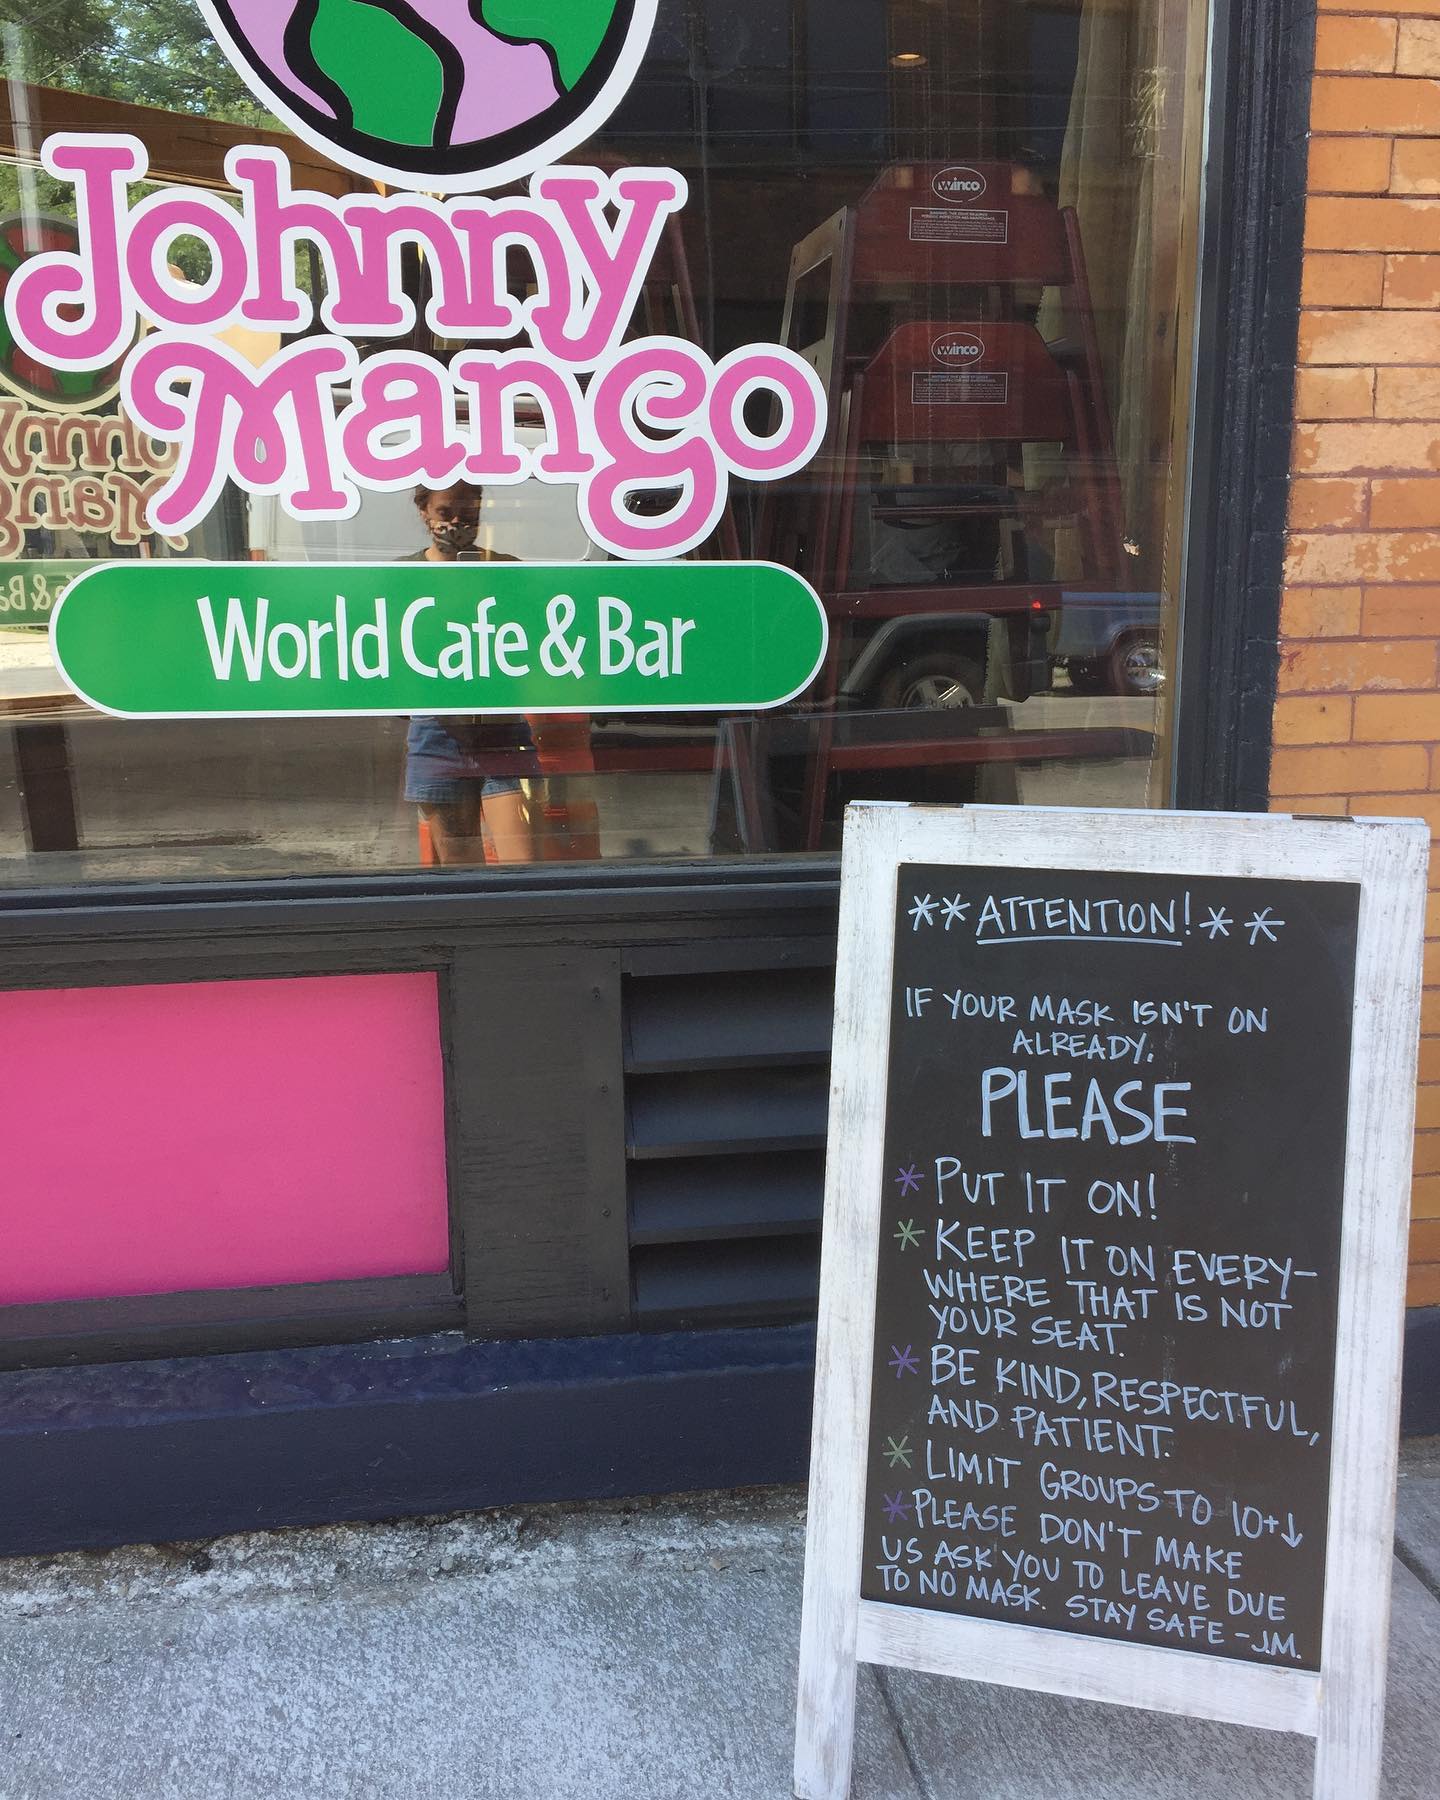 Johnny
Mango
World Cafe & Bar
winco
winco
**ATTENTION!**
IF YOUR MASK ISN'T ON
ALREADY.
PLEASE
* PUT IT ON!
* KEEP IT ON EVERY-
WHERE THAT IS NOT
YOUR SEAT.
* BE KIND, RESPECTFUL,
AND PATIENT.
* LIMIT GROUPS TO 10+↓
* PLEASE DON'T MAKE
US ASK YOU TO LEAVE DUE
TO NO MASK. STAY SAFE -J.M.